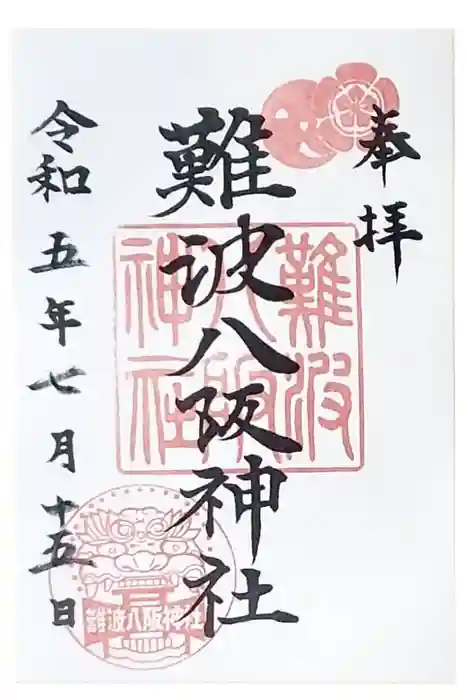 奉拝
難波八阪神社
令和五年七月十五日
難波八阪神社
難波八阪神社